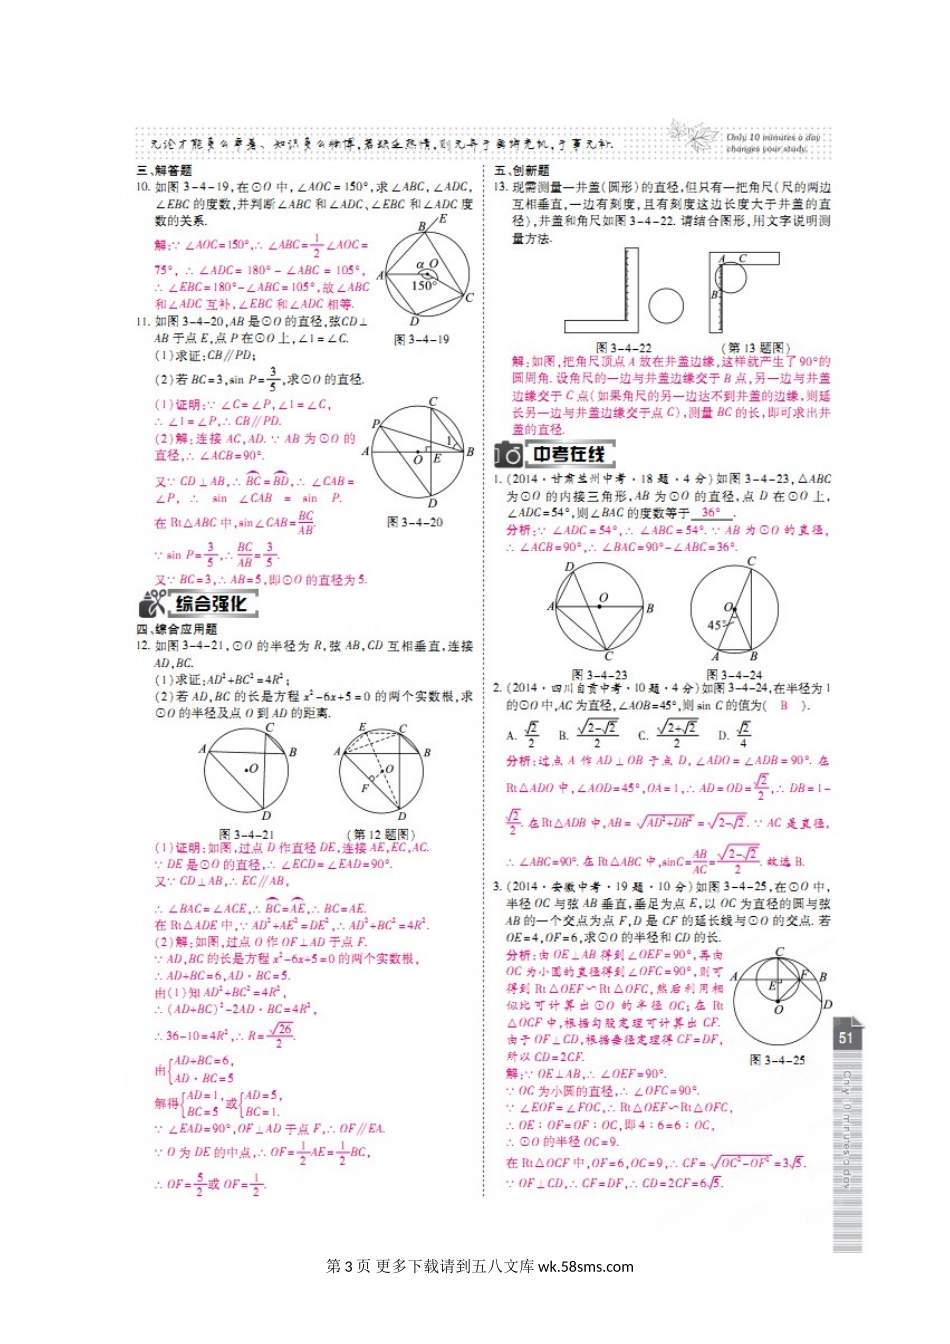 无论才能多么卓著、知识多么渊博,若缺乏热情,则无异于画饼充饥,于事无补.
Only 10 minutes a day
changes your study.
三、解答题
10. 如图3-4-19,在⊙O中,∠AOC=150°,求∠ABC,∠ADC,
∠EBC的度数,并判断∠ABC和∠ADC、∠EBC和∠ADC度
数的关系.
解:∵∠AOC=150°,∴∠ABC=1/2∠AOC=
75°,∴∠ADC=180°-∠ABC=105°,
∴∠EBC=180°-∠ABC=105°,故∠ABC
和∠ADC互补,∠EBC和∠ADC相等.
B E A α O 150° C D
图3-4-19
11. 如图3-4-20,AB是⊙O的直径,弦CD⊥
AB于点E,点P在⊙O上,∠1=∠C.
(1)求证:CB∥PD;
(2)若BC=3,sin P=3/5,求⊙O的直径.
(1)证明:∵∠C=∠P,∠1=∠C,
∴∠1=∠P,∴CB∥PD.
(2)解:连接AC,AD.∵AB为⊙O的
直径,∴∠ACB=90°.
又∵CD⊥AB,∴⌒BC=⌒BD,∴∠CAB=
∠P,∴sin∠CAB=sin P.
在Rt△ABC中,sin∠CAB=BC/AB
∵sin P=3/5,∴BC/AB=3/5.
又∵BC=3,∴AB=5,即⊙O的直径为5.
C P A O E 1 B D
图3-4-20
综合强化
四、综合应用题
12. 如图3-4-21,⊙O的半径为R,弦AB,CD互相垂直,连接
AD,BC.
(1)求证:AD²+BC²=4R²;
(2)若AD,BC的长是方程x²-6x+5=0的两个实数根,求
⊙O的半径及点O到AD的距离.
C A B O D
E C A B O F D
图3-4-21 (第12题图)
(1)证明:如图,过点D作直径DE,连接AE,EC,AC.
∵DE是⊙O的直径,∴∠ECD=∠EAD=90°.
又∵CD⊥AB,∴EC∥AB,
∴∠BAC=∠ACE,∴⌒BC=⌒AE,∴BC=AE.
在Rt△ADE中,∵AD²+AE²=DE²,∴AD²+BC²=4R².
(2)解:如图,过点O作OF⊥AD于点F.
∵AD,BC的长是方程x²-6x+5=0的两个实数根,
∴AD+BC=6,AD·BC=5.
由(1)知AD²+BC²=4R²,
∴(AD+BC)²-2AD·BC=4R²,
∴36-10=4R²,∴R=√26/2.
由{AD+BC=6, AD·BC=5
解得{AD=1, BC=5 或{AD=5, BC=1.
∵∠EAD=90°,OF⊥AD于点F,∴OF∥EA.
∵O为DE的中点,∴OF=1/2AE=1/2BC,
∴OF=5/2或OF=1/2.
五、创新题
13. 现需测量一井盖(圆形)的直径,但只有一把角尺(尺的两边
互相垂直,一边有刻度,且有刻度这边长度大于井盖的直
径),井盖和角尺如图3-4-22.请结合图形,用文字说明测
量方法.
A C B
图3-4-22 (第13题图)
解:如图,把角尺顶点A放在井盖边缘,这样就产生了90°的
圆周角.设角尺的一边与井盖边缘交于B点,另一边与井盖
边缘交于C点(如果角尺的另一边达不到井盖的边缘,则延
长另一边与井盖边缘交于点C),测量BC的长,即可求出井
盖的直径.
中考在线
1. (2014·甘肃兰州中考·18题·4分)如图3-4-23,△ABC
为⊙O的内接三角形,AB为⊙O的直径,点D在⊙O上,
∠ADC=54°,则∠BAC的度数等于 36° .
分析:∵∠ADC=54°,∴∠ABC=54°.∵AB为⊙O的直径,
∴∠ACB=90°,∴∠BAC=90°-∠ABC=36°.
D O A B C
C O 45° A B
图3-4-23 图3-4-24
2. (2014·四川自贡中考·10题·4分)如图3-4-24,在半径为1
的⊙O中,AC为直径,∠AOB=45°,则sin C的值为( B ).
A. √2/2 B. √(2-√2)/2 C. √(2+√2)/2 D. √2/4
分析:过点A作AD⊥OB于点D,∠ADO=∠ADB=90°.在
Rt△ADO中,∠AOD=45°,OA=1,∴AD=OD=√2/2,∴DB=1-
√2/2.在Rt△ADB中,AB=√(AD²+DB²)=√(2-√2).∵AC是直径,
∴∠ABC=90°.在Rt△ABC中,sinC=AB/AC=√(2-√2)/2.故选B.
3. (2014·安徽中考·19题·10分)如图3-4-25,在⊙O中,
半径OC与弦AB垂直,垂足为点E,以OC为直径的圆与弦
AB的一个交点为点F,D是CF的延长线与⊙O的交点.若
OE=4,OF=6,求⊙O的半径和CD的长.
分析:由OE⊥AB得到∠OEF=90°,再由
OC为小圆的直径得到∠OFC=90°,则可
得到Rt△OEF∽Rt△OFC,然后利用相
似比可计算出⊙O的半径OC;在Rt
△OCF中,根据勾股定理可计算出CF.
由于OF⊥CD,根据垂径定理得CF=DF,
所以CD=2CF.
C A E F B D O
图3-4-25
解:∵OE⊥AB,∴∠OEF=90°.
∵OC为小圆的直径,∴∠OFC=90°.
∵∠EOF=∠FOC,∴Rt△OEF∽Rt△OFC,
∴OE:OF=OF:OC,即4:6=6:OC,
∴⊙O的半径OC=9.
在Rt△OCF中,OF=6,OC=9,∴CF=√(OC²-OF²)=3√5.
∵OF⊥CD,∴CF=DF,∴CD=2CF=6√5.
51
Only 10 minutes a day
第 3 页 更多下载请到五八文库 wk.58sms.com